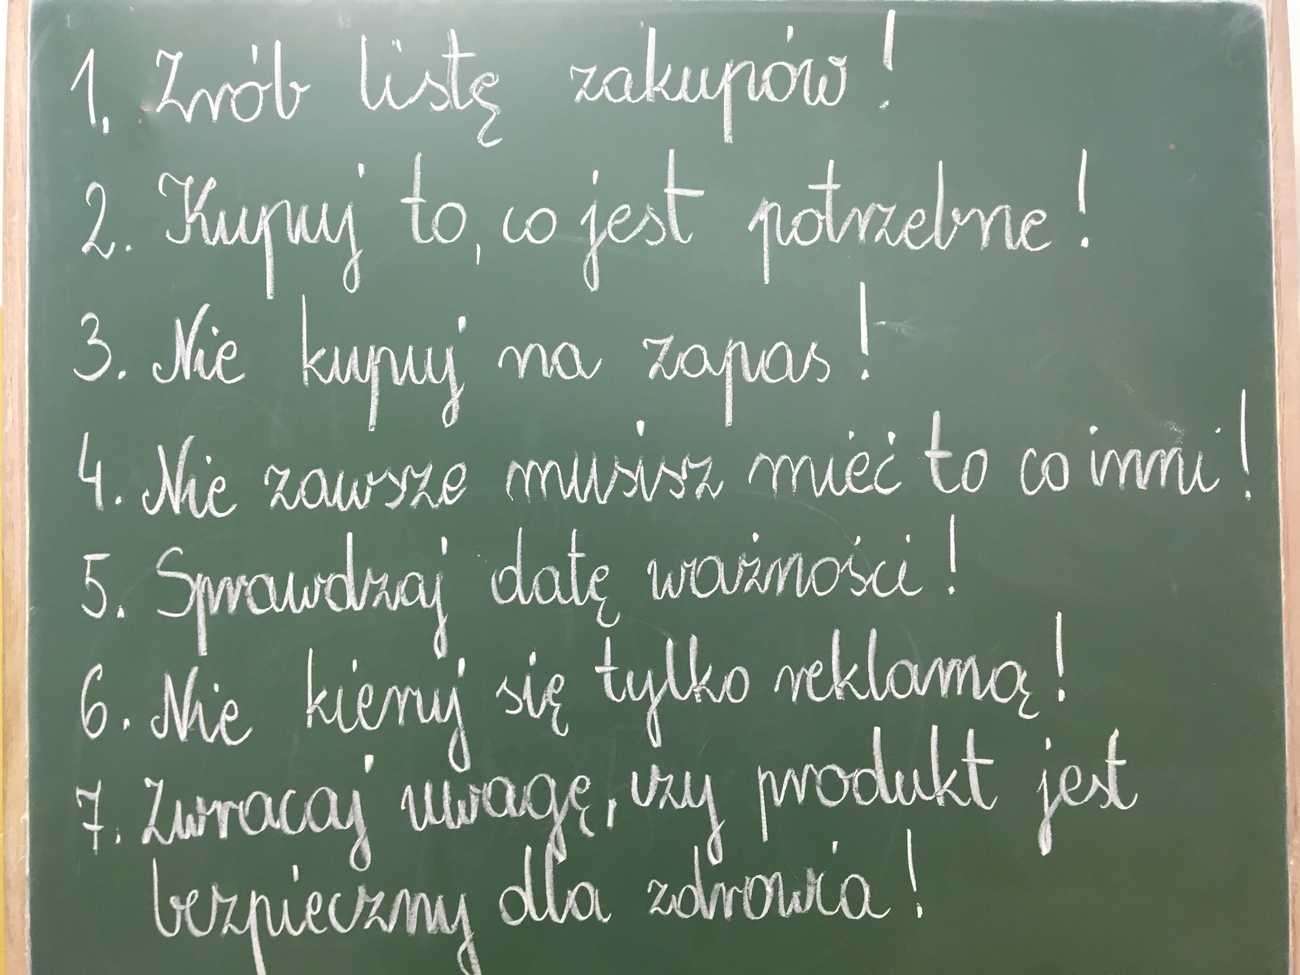 1. Zrób listę zakupów!
2. Kupuj to, co jest potrzebne!
3. Nie kupuj na zapas!
4. Nie zawsze musisz mieć to co inni!
5. Sprawdzaj datę ważności!
6. Nie kieruj się tylko reklamą!
7. Zwracaj uwagę, czy produkt jest
bezpieczny dla zdrowia!